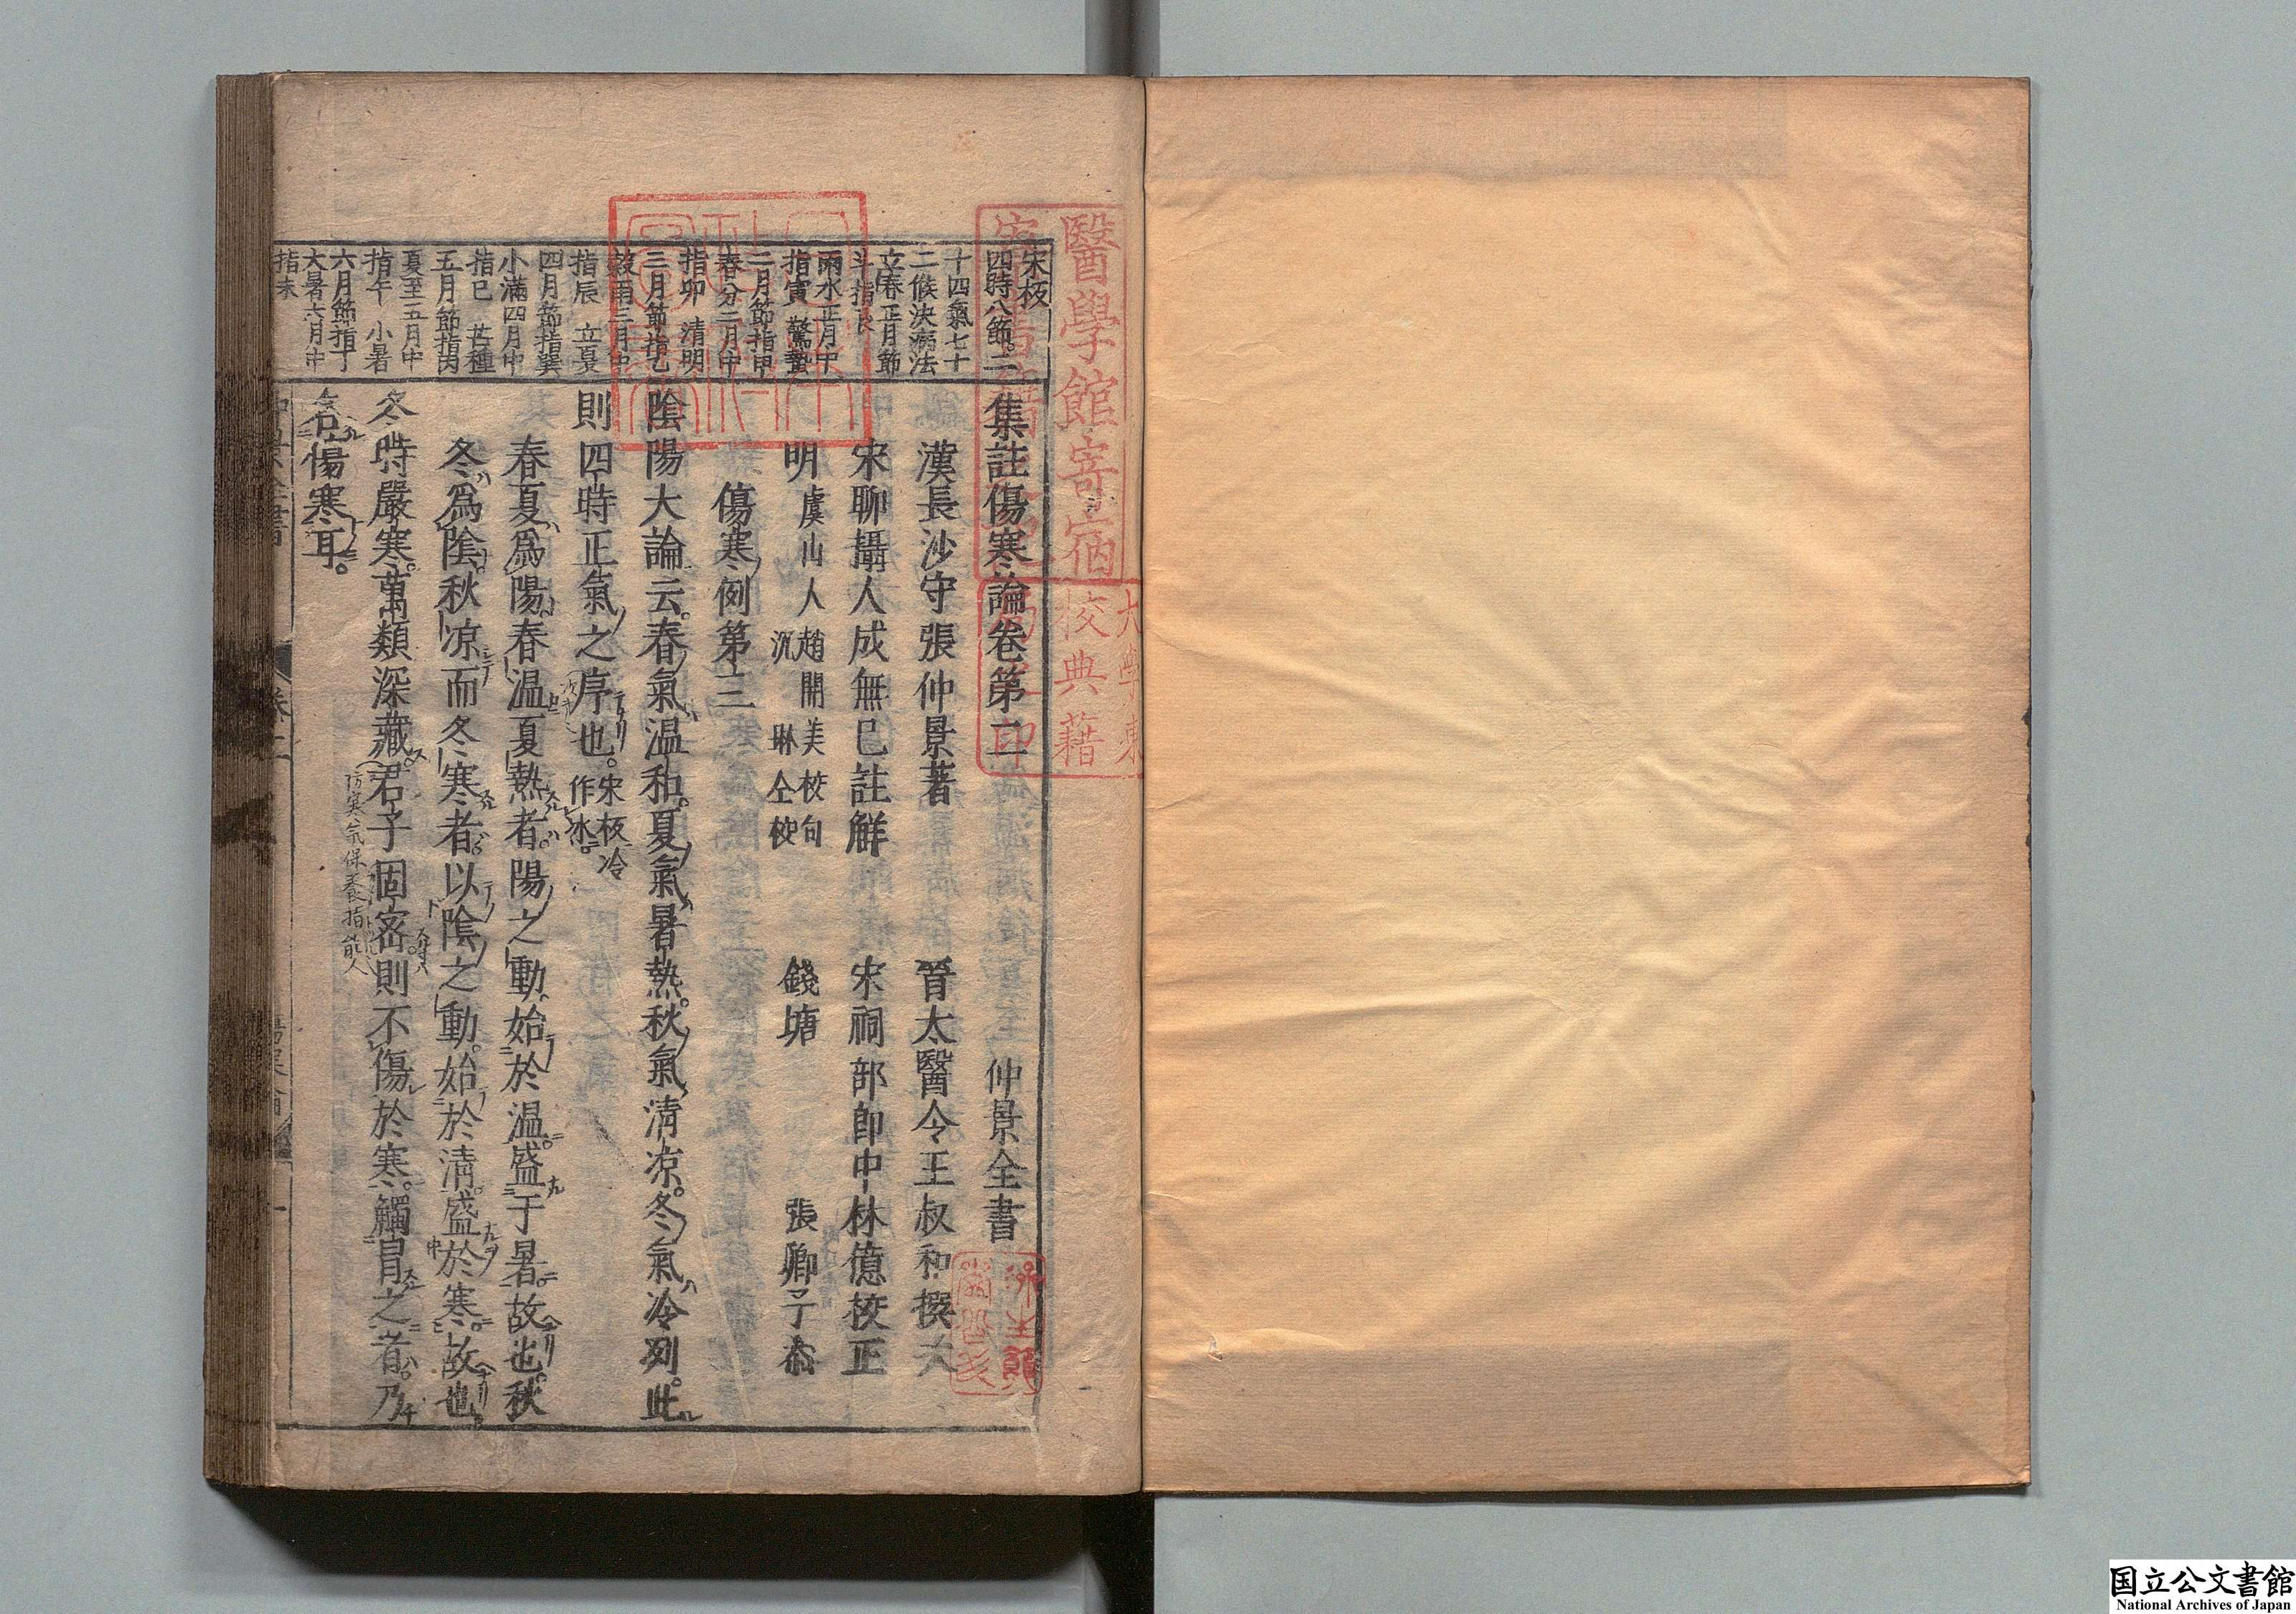 宋板
四時八節二
十四氣七十
二候決病法
立春正月節
斗指艮
雨水正月中
指寅 驚蟄
二月節指甲
春分二月中
指卯 清明
三月節指乙
穀雨三月中
指辰 立夏
四月節指巽
小滿四月中
指巳 芒種
五月節指丙
夏至五月中
指午 小暑
六月節指丁
大暑六月中
指未
集註傷寒論卷第二 仲景全書
漢長沙守張仲景著 晉太醫令王叔和撰次
宋聊攝人成無已註解 宋祠部郎中林億校正
明虞山人趙開美校句
沉琳仝校
錢塘 張卿子叅
傷寒例第三
陰陽大論云。春氣温和。夏氣暑熱。秋氣清凉。冬氣冷列。此
則四時正氣之序也。宋板冷
作氷。
春夏爲陽。春温夏熱者。陽之動。始於温。盛于暑。故也。秋
冬爲陰。秋凉而冬寒者。以陰之動。始於清。盛於寒。故也
冬時嚴寒。萬類深藏。君子固密。則不傷於寒。觸冒之者。乃
名傷寒耳。
防寒氣保養指能人
卷二
醫學館寄宿
大學東
校典藉
国立公文書館
National Archives of Japan